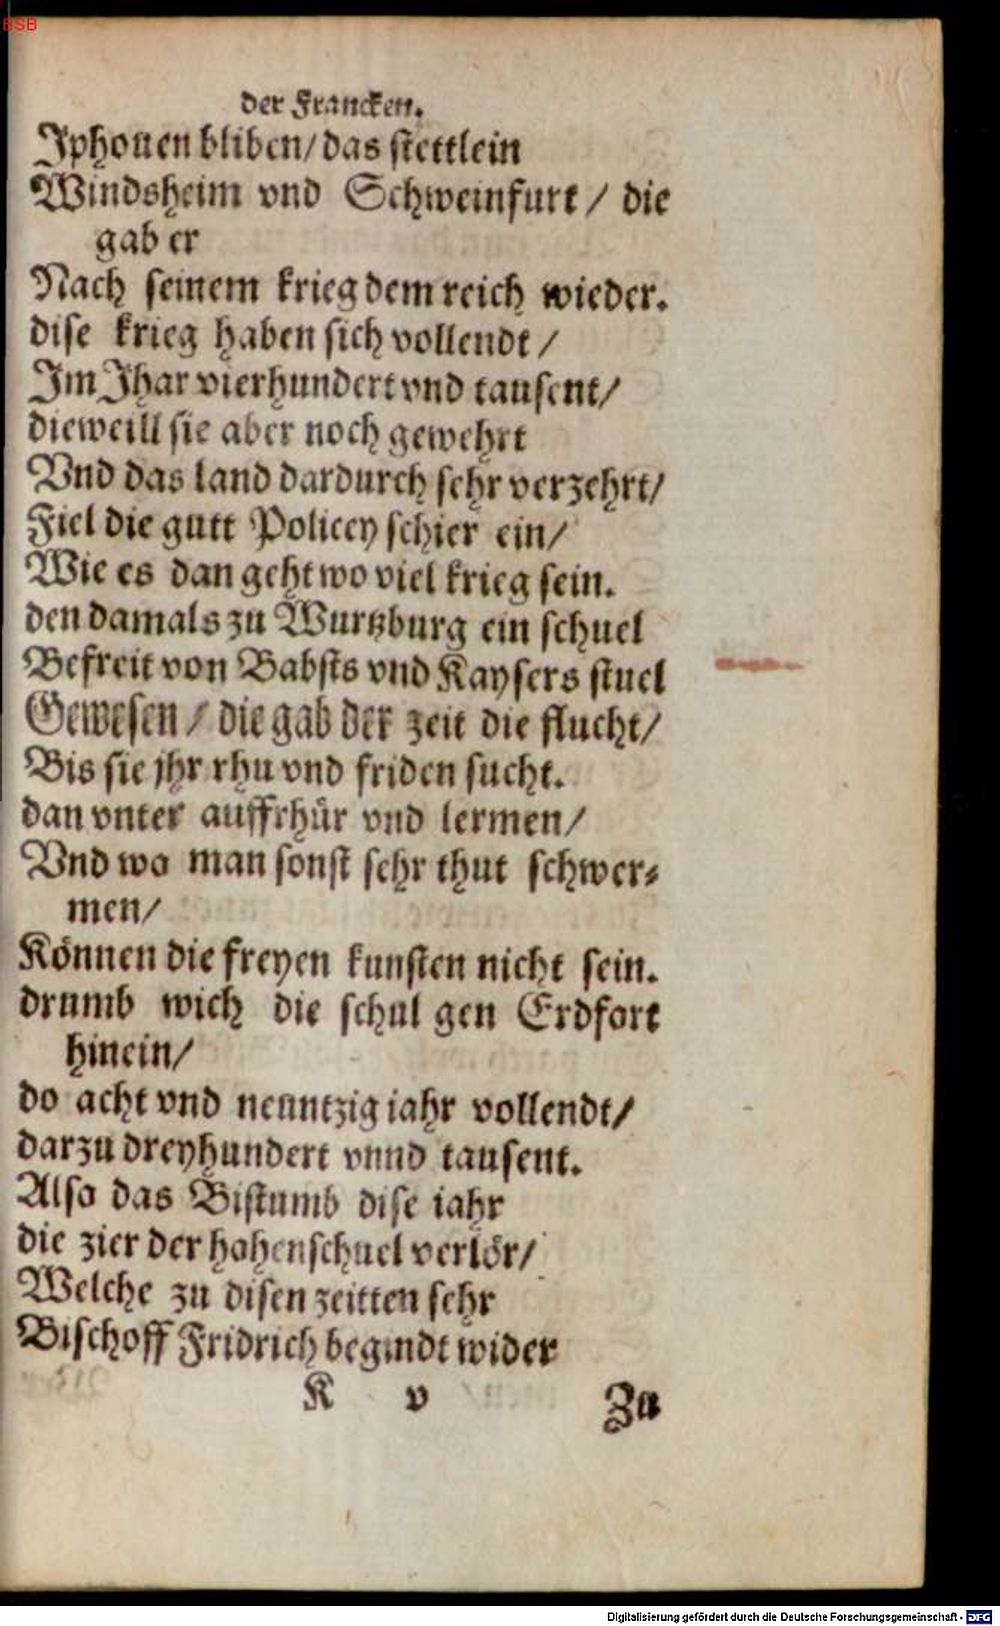 BSB
der Francken.
Jphouen bliben/ das stettlein
Windsheim vnd Schweinfurt / die
gab er
Nach seinem krieg dem reich wieder.
dise krieg haben sich vollendt /
Im Jhar vierhundert vnd tausent/
dieweill sie aber noch gewehrt
Vnd das land dardurch sehr verzehrt/
Fiel die gutt Policey schier ein/
Wie es dan geht wo viel krieg sein.
den damals zu Wurtzburg ein schuel
Befreit von Babsts vnd Kaysers stuel
Gewesen / die gab der zeit die flucht/
Bis sie jhr rhu vnd friden sucht.
dan vnter auffrhür vnd lermen/
Vnd wo man sonst sehr thut schwer⸗
men/
Können die freyen kunsten nicht sein.
drumb wich die schul gen Erdfort
hinein/
do acht vnd neuntzig iahr vollendt/
darzu dreyhundert vnnd tausent.
Also das Bistumb dise iahr
die zier der hohenschuel verlör/
Welche zu disen zeitten sehr
Bischoff Fridrich begindt wider
K v Zu
Digitalisierung gefördert durch die Deutsche Forschungsgemeinschaft - DFG